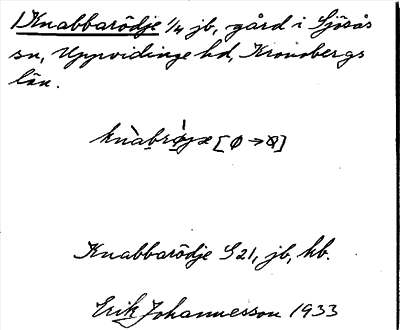 1 Knabbarödje 1/4 jb, gård i Sjösås
sn, Uppvidinge hd, Kronobergs
län.
[ø → ]
Knabbarödje S 21, jb, kb.
Erik Johannesson 1933